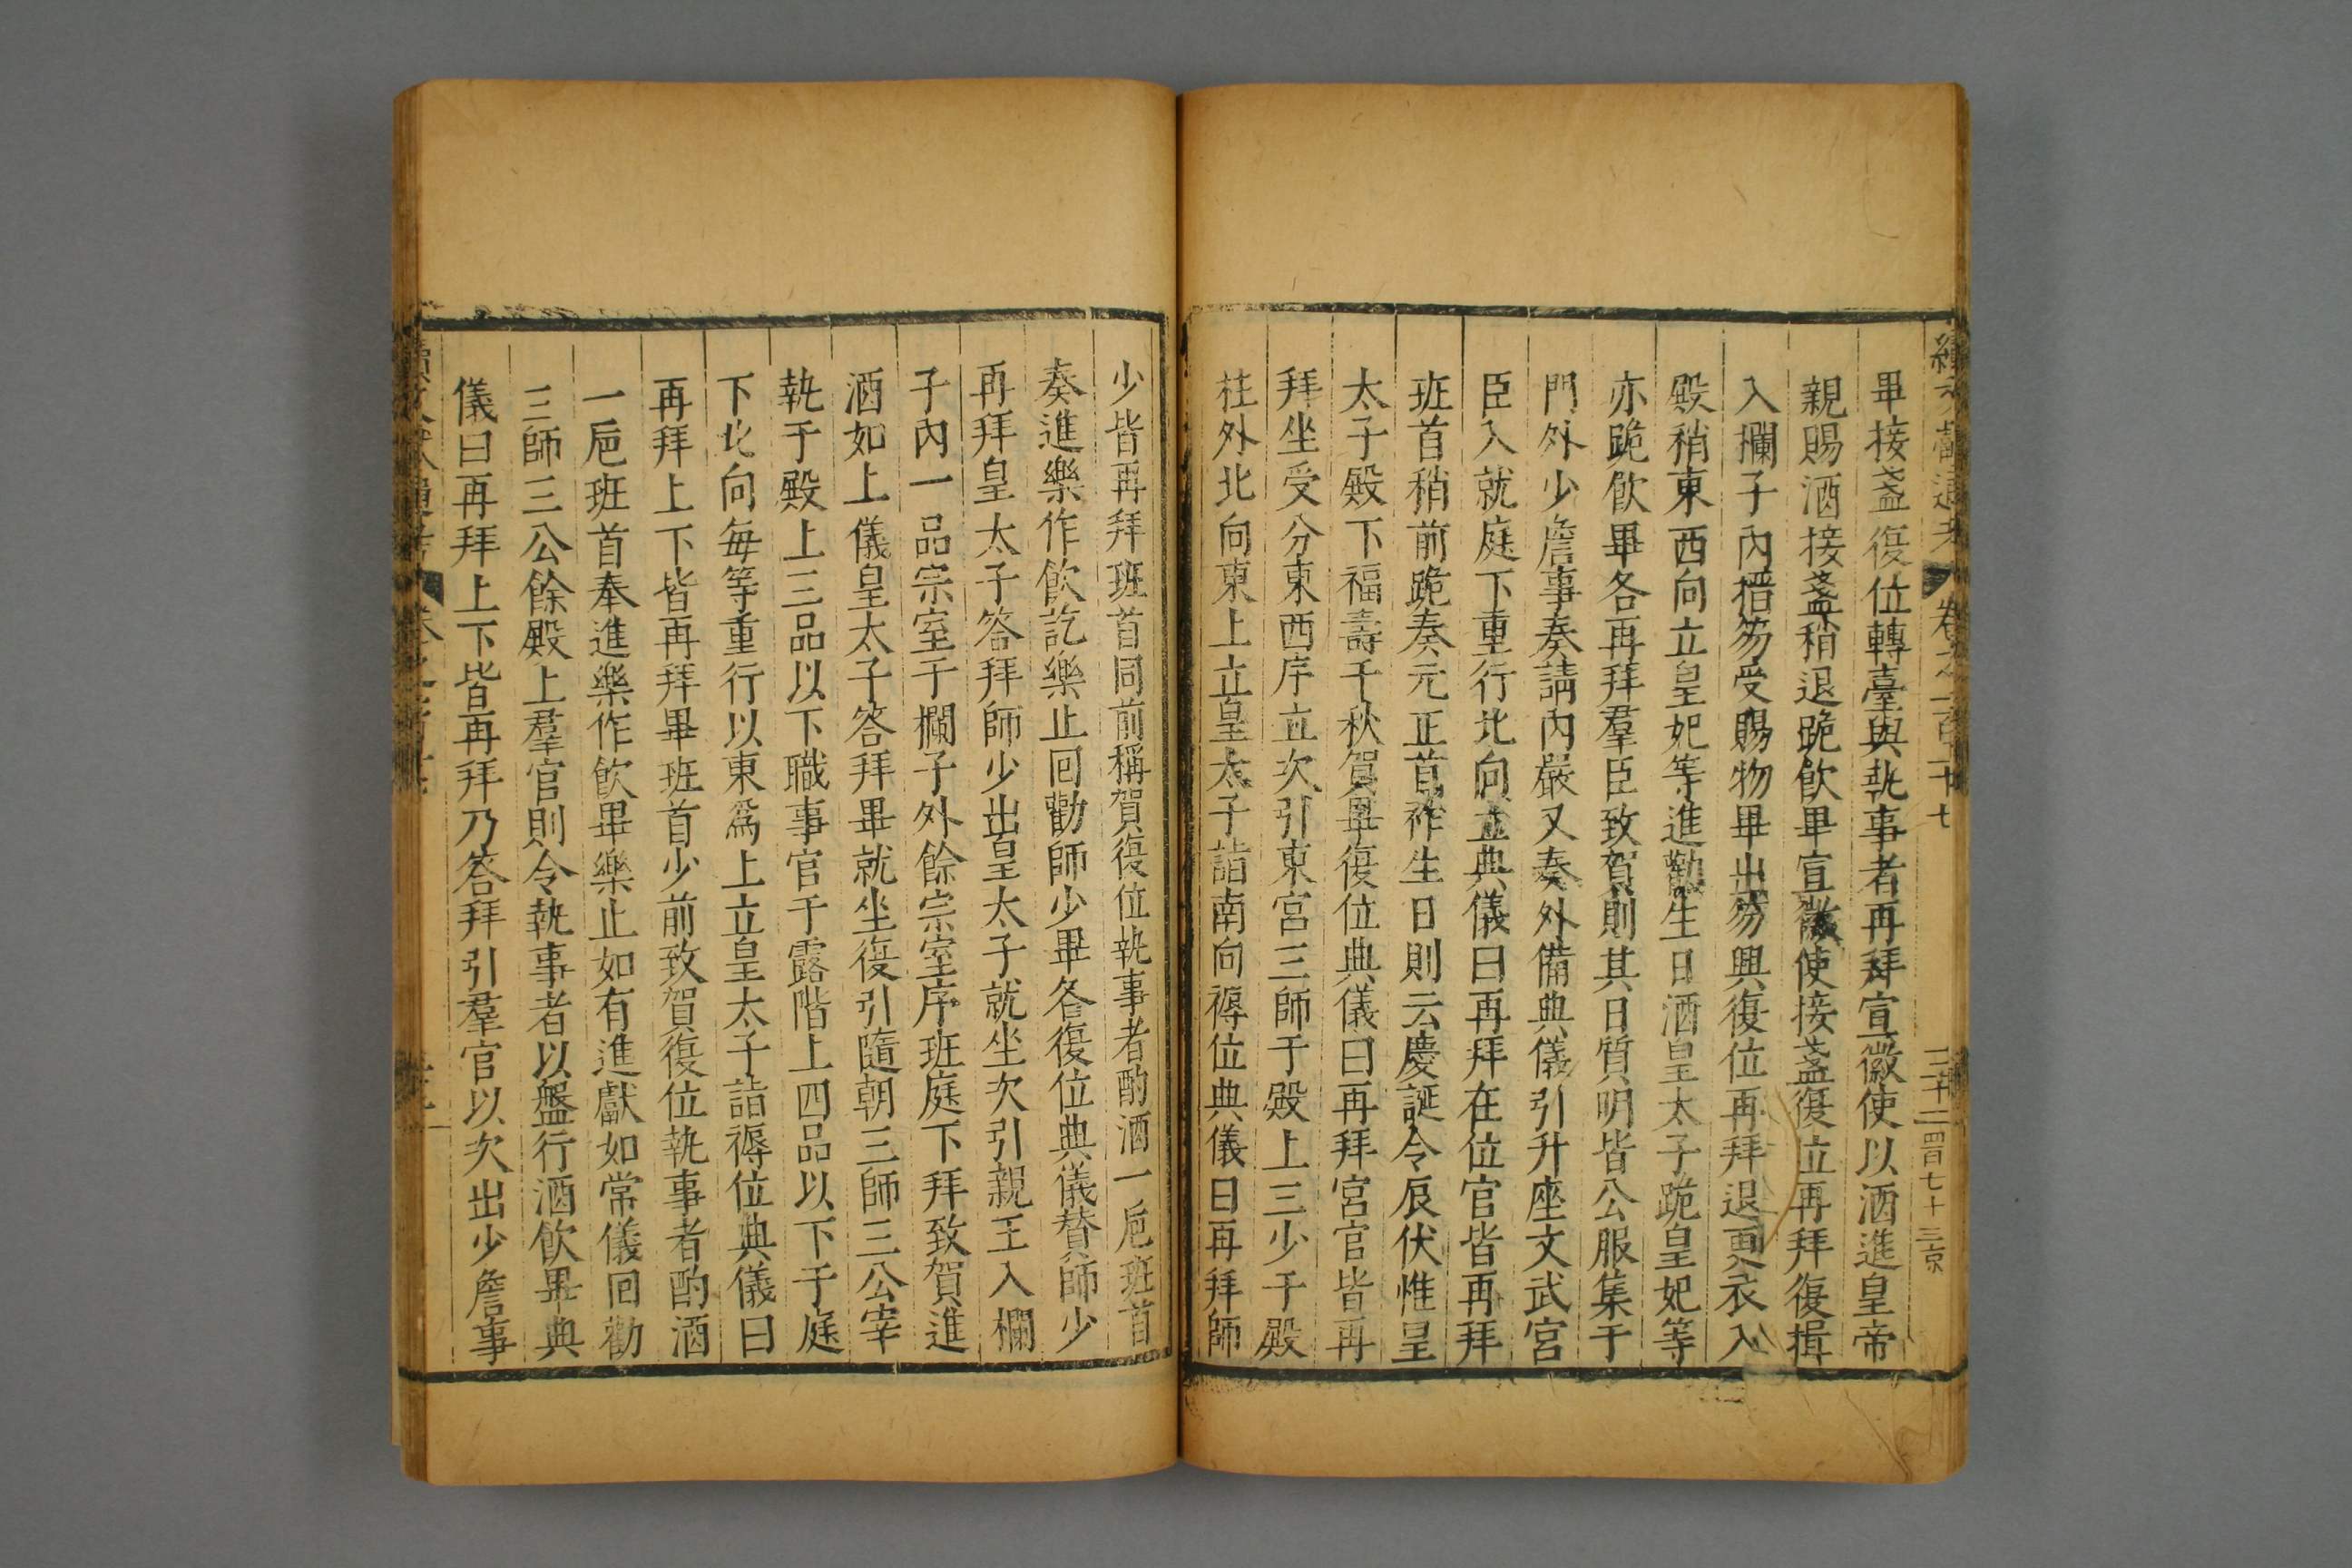 畢接盞復位轉臺與執事者再拜宣徽使以酒進皇帝
親賜酒接盞稍退跪飲畢宣徽使接盞復立再拜復揖
入欄子內搢笏受賜物畢出笏興復位再拜退更衣入
殿稍東西向立皇妃等進勸生日酒皇太子跪皇妃等
亦跪飲畢各再拜羣臣致賀則其日質明皆公服集于
門外少詹事奏請內嚴又奏外備典儀引升座文武宮
臣入就庭下重行北向立典儀曰再拜在位官皆再拜
班首稍前跪奏元正首祚生日則云慶誕令辰伏惟皇
太子殿下福壽千秋賀畢復位典儀曰再拜宮官皆再
拜坐受分東西序立次引東宮三師于殿上三少于殿
柱外北向東上立皇太子詣南向褥位典儀曰再拜師
少皆再拜班首同前稱賀復位執事者酌酒一卮班首
奏進樂作飲訖樂止回勸師少畢各復位典儀替師少
再拜皇太子答拜師少出皇太子就坐次引親王入欄
子內一品宗室于欄子外餘宗室序班庭下拜致賀進
酒如上儀皇太子答拜畢就坐復引隨朝三師三公宰
執于殿上三品以下職事官于露階上四品以下于庭
下北向每等重行以東爲上立皇太子詣褥位典儀曰
再拜上下皆再拜畢班首少前致賀復位執事者酌酒
一卮班首奉進樂作飲畢樂止如有進獻如常儀回勸
三師三公餘殿上羣官則令執事者以盤行酒飲畢典
儀曰再拜上下皆再拜乃答拜引羣官以次出少詹事